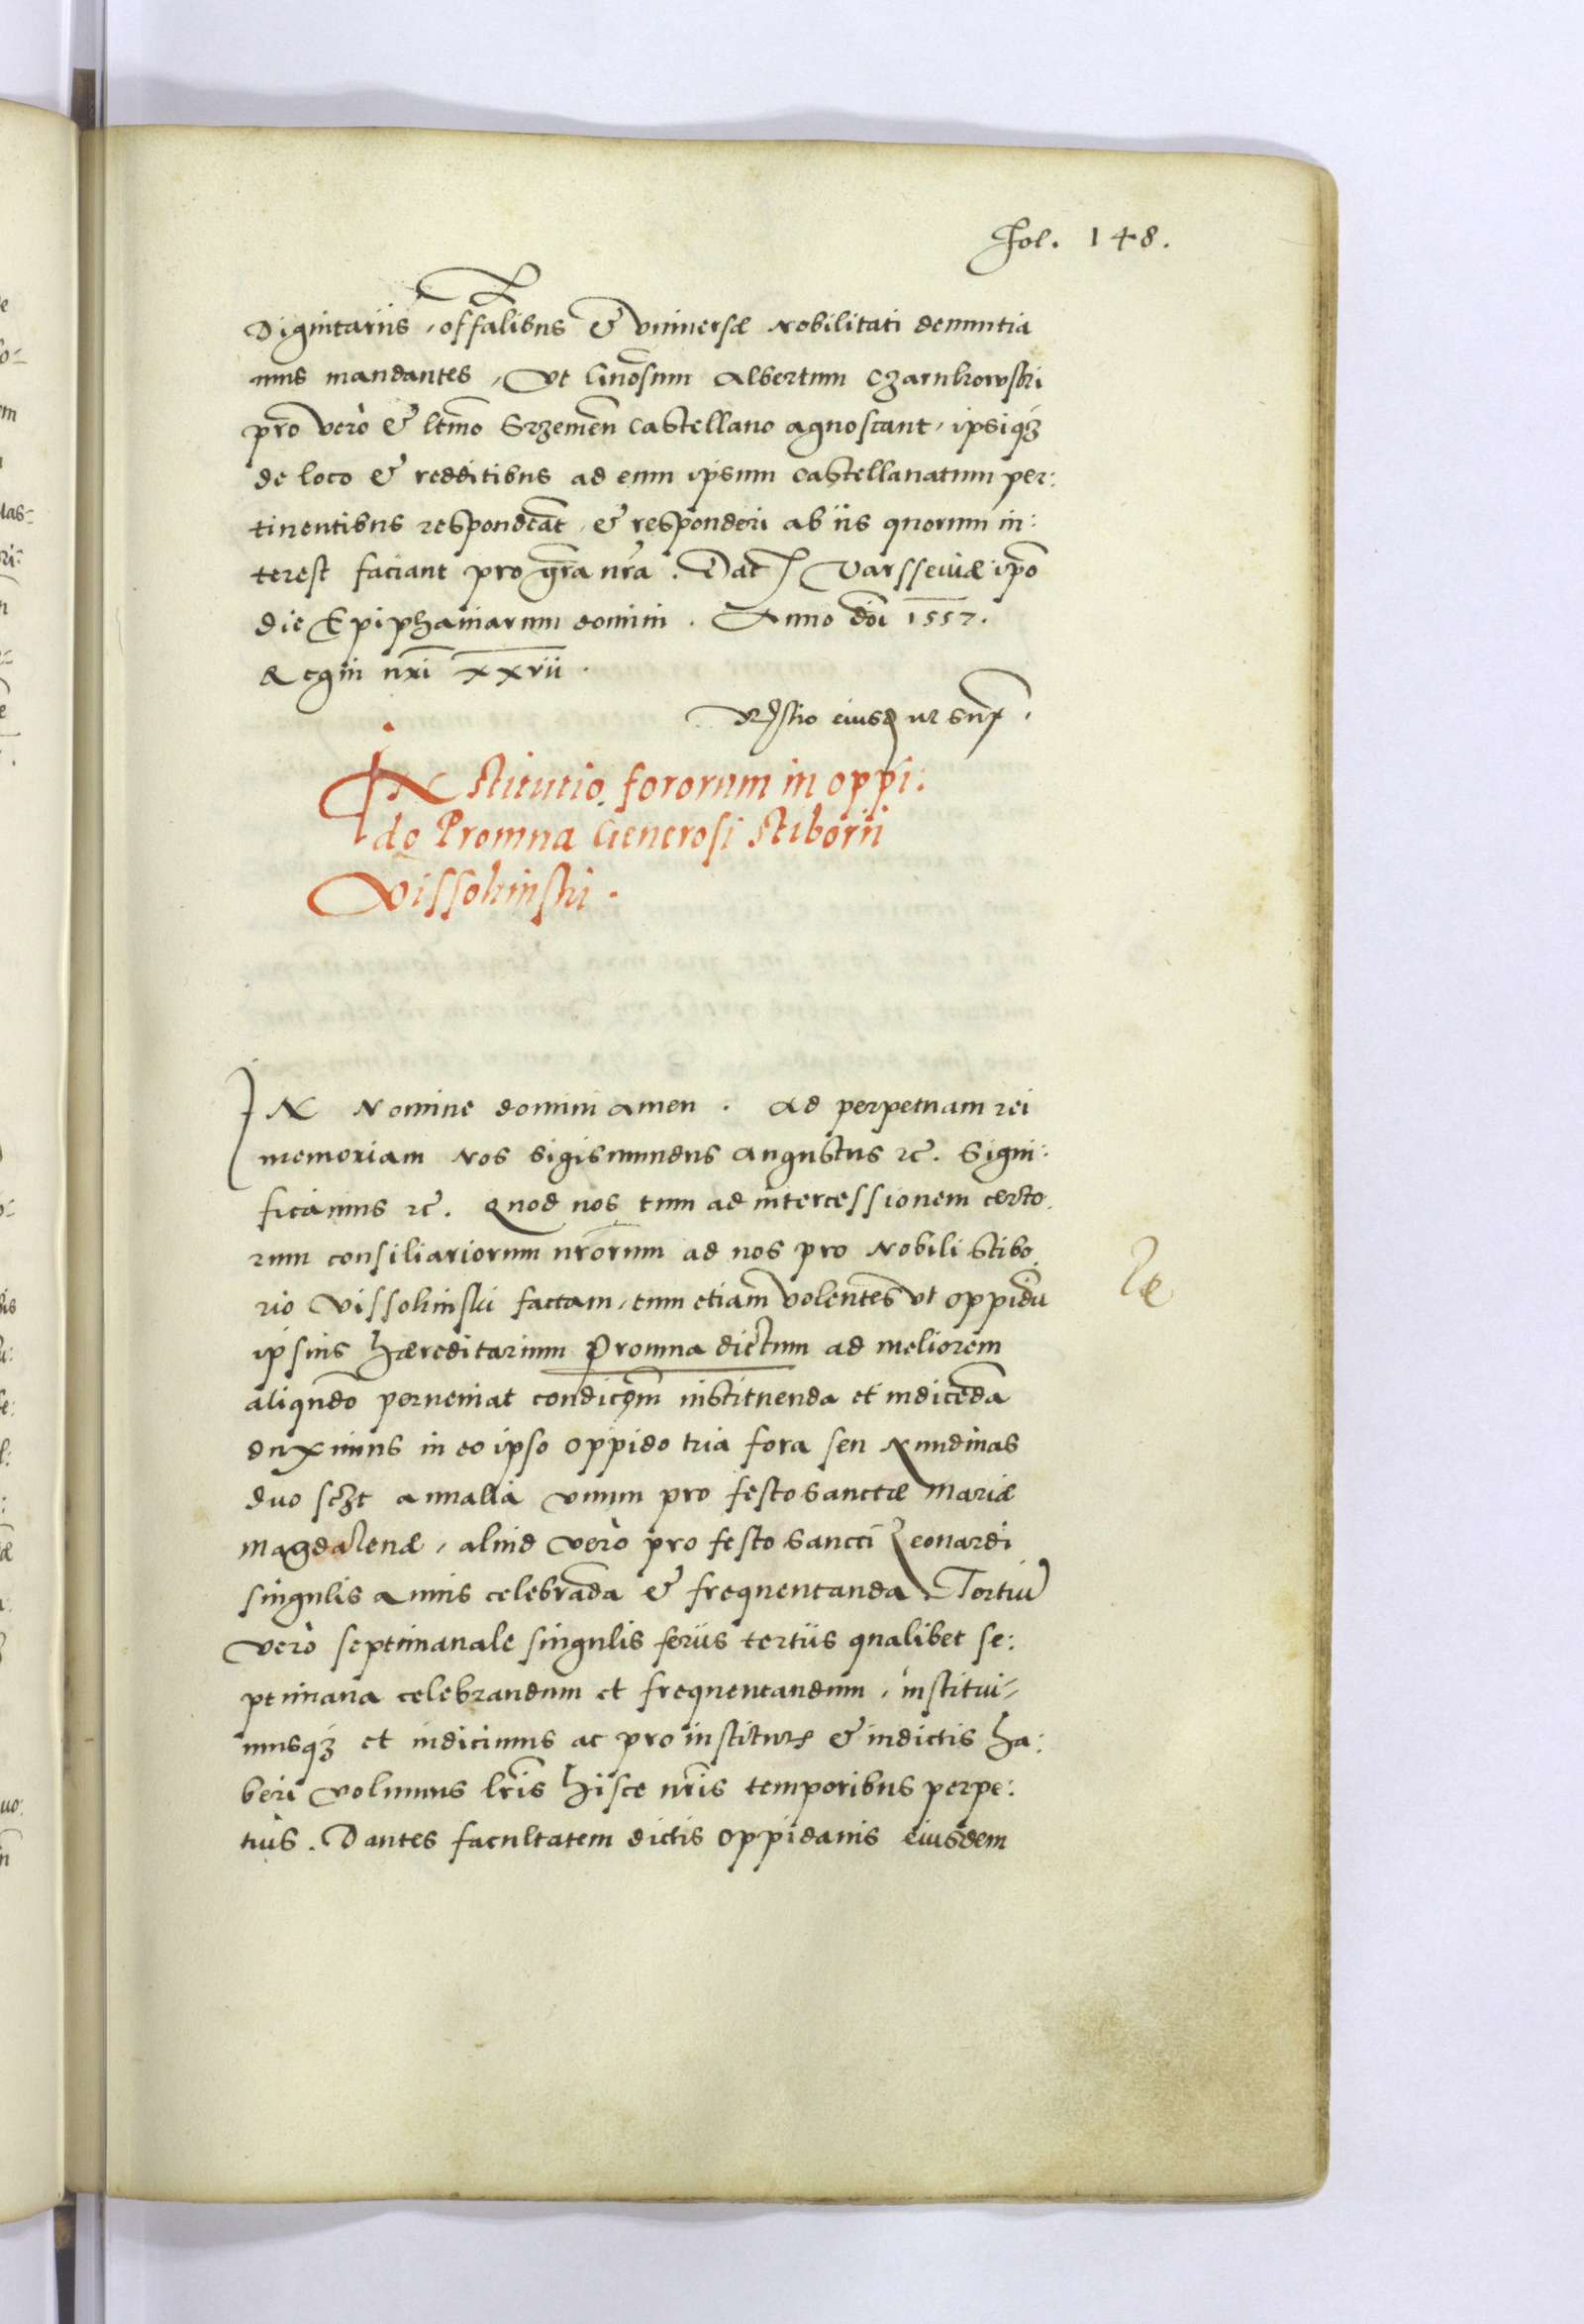 Fol. 148.
Dignitariis, offalibus & universæ Nobilitati denuntia
mus mandantes, Ut Gnosum Albertum Czarnkowski
pro vero & ltmo Srzemen Castellano agnoscant, ipsiqʒ
de loco & redditibus ad eum ipsum Castellanatum per:
tinentibus respondeāt, & responderi ab iis quorum in:
terest faciant pro gra nra. Dat Varsseviæ ipo
die Epiphaniarum domini. Anno doi 1557.
Regni nri xxvii.
eiusd ut supr.
IN stitutio fororum in oppi:
do Promna Generosi Stiborii
Vissokinski.
IN Nomine domini Amen. Ad perpetuam rei
memoriam Nos Sigismundus Augustus ꝛc. Signi:
ficamus ꝛc. Quod nos tum ad intercessionem certo
rum consiliariorum nrorum ad nos pro Nobili Stibo
rio Vissokinski factam, tum etiam volentes ut oppidū
ipsius hæreditarium Promna dictum ad meliorem
aliqndo perveniat condicoem instituenda et indicēda
duximus in eo ipso oppido tria fora seu Nundinas
duo sczt annalia unum pro festo Sanctæ Mariæ
Magdalenæ, aliud verò pro festo Sancti Leonardi
singulis annis celebrāda & frequentanda Tertiū
verò septimanale singulis feriis tertiis qualibet se:
ptimana celebrandum et frequentandum, institui-
musqʒ et indicimus ac pro institutis & indictis ha:
beri volumus lris hisce nris temporibus perpe:
tuis. Dantes facultatem dictis oppidanis eiusdem